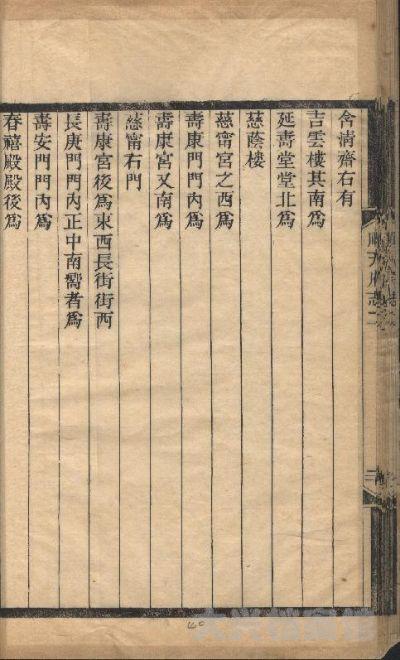 含淸齋右有
吉雲樓其南爲
延壽堂堂北爲
慈蔭樓
慈甯宮之西爲
壽康門門內爲
壽康宮又南爲
慈甯右門
壽康宮後爲東西長街街西
長庚門門內正中南嚮者爲
壽安門門內爲
春禧殿殿後爲